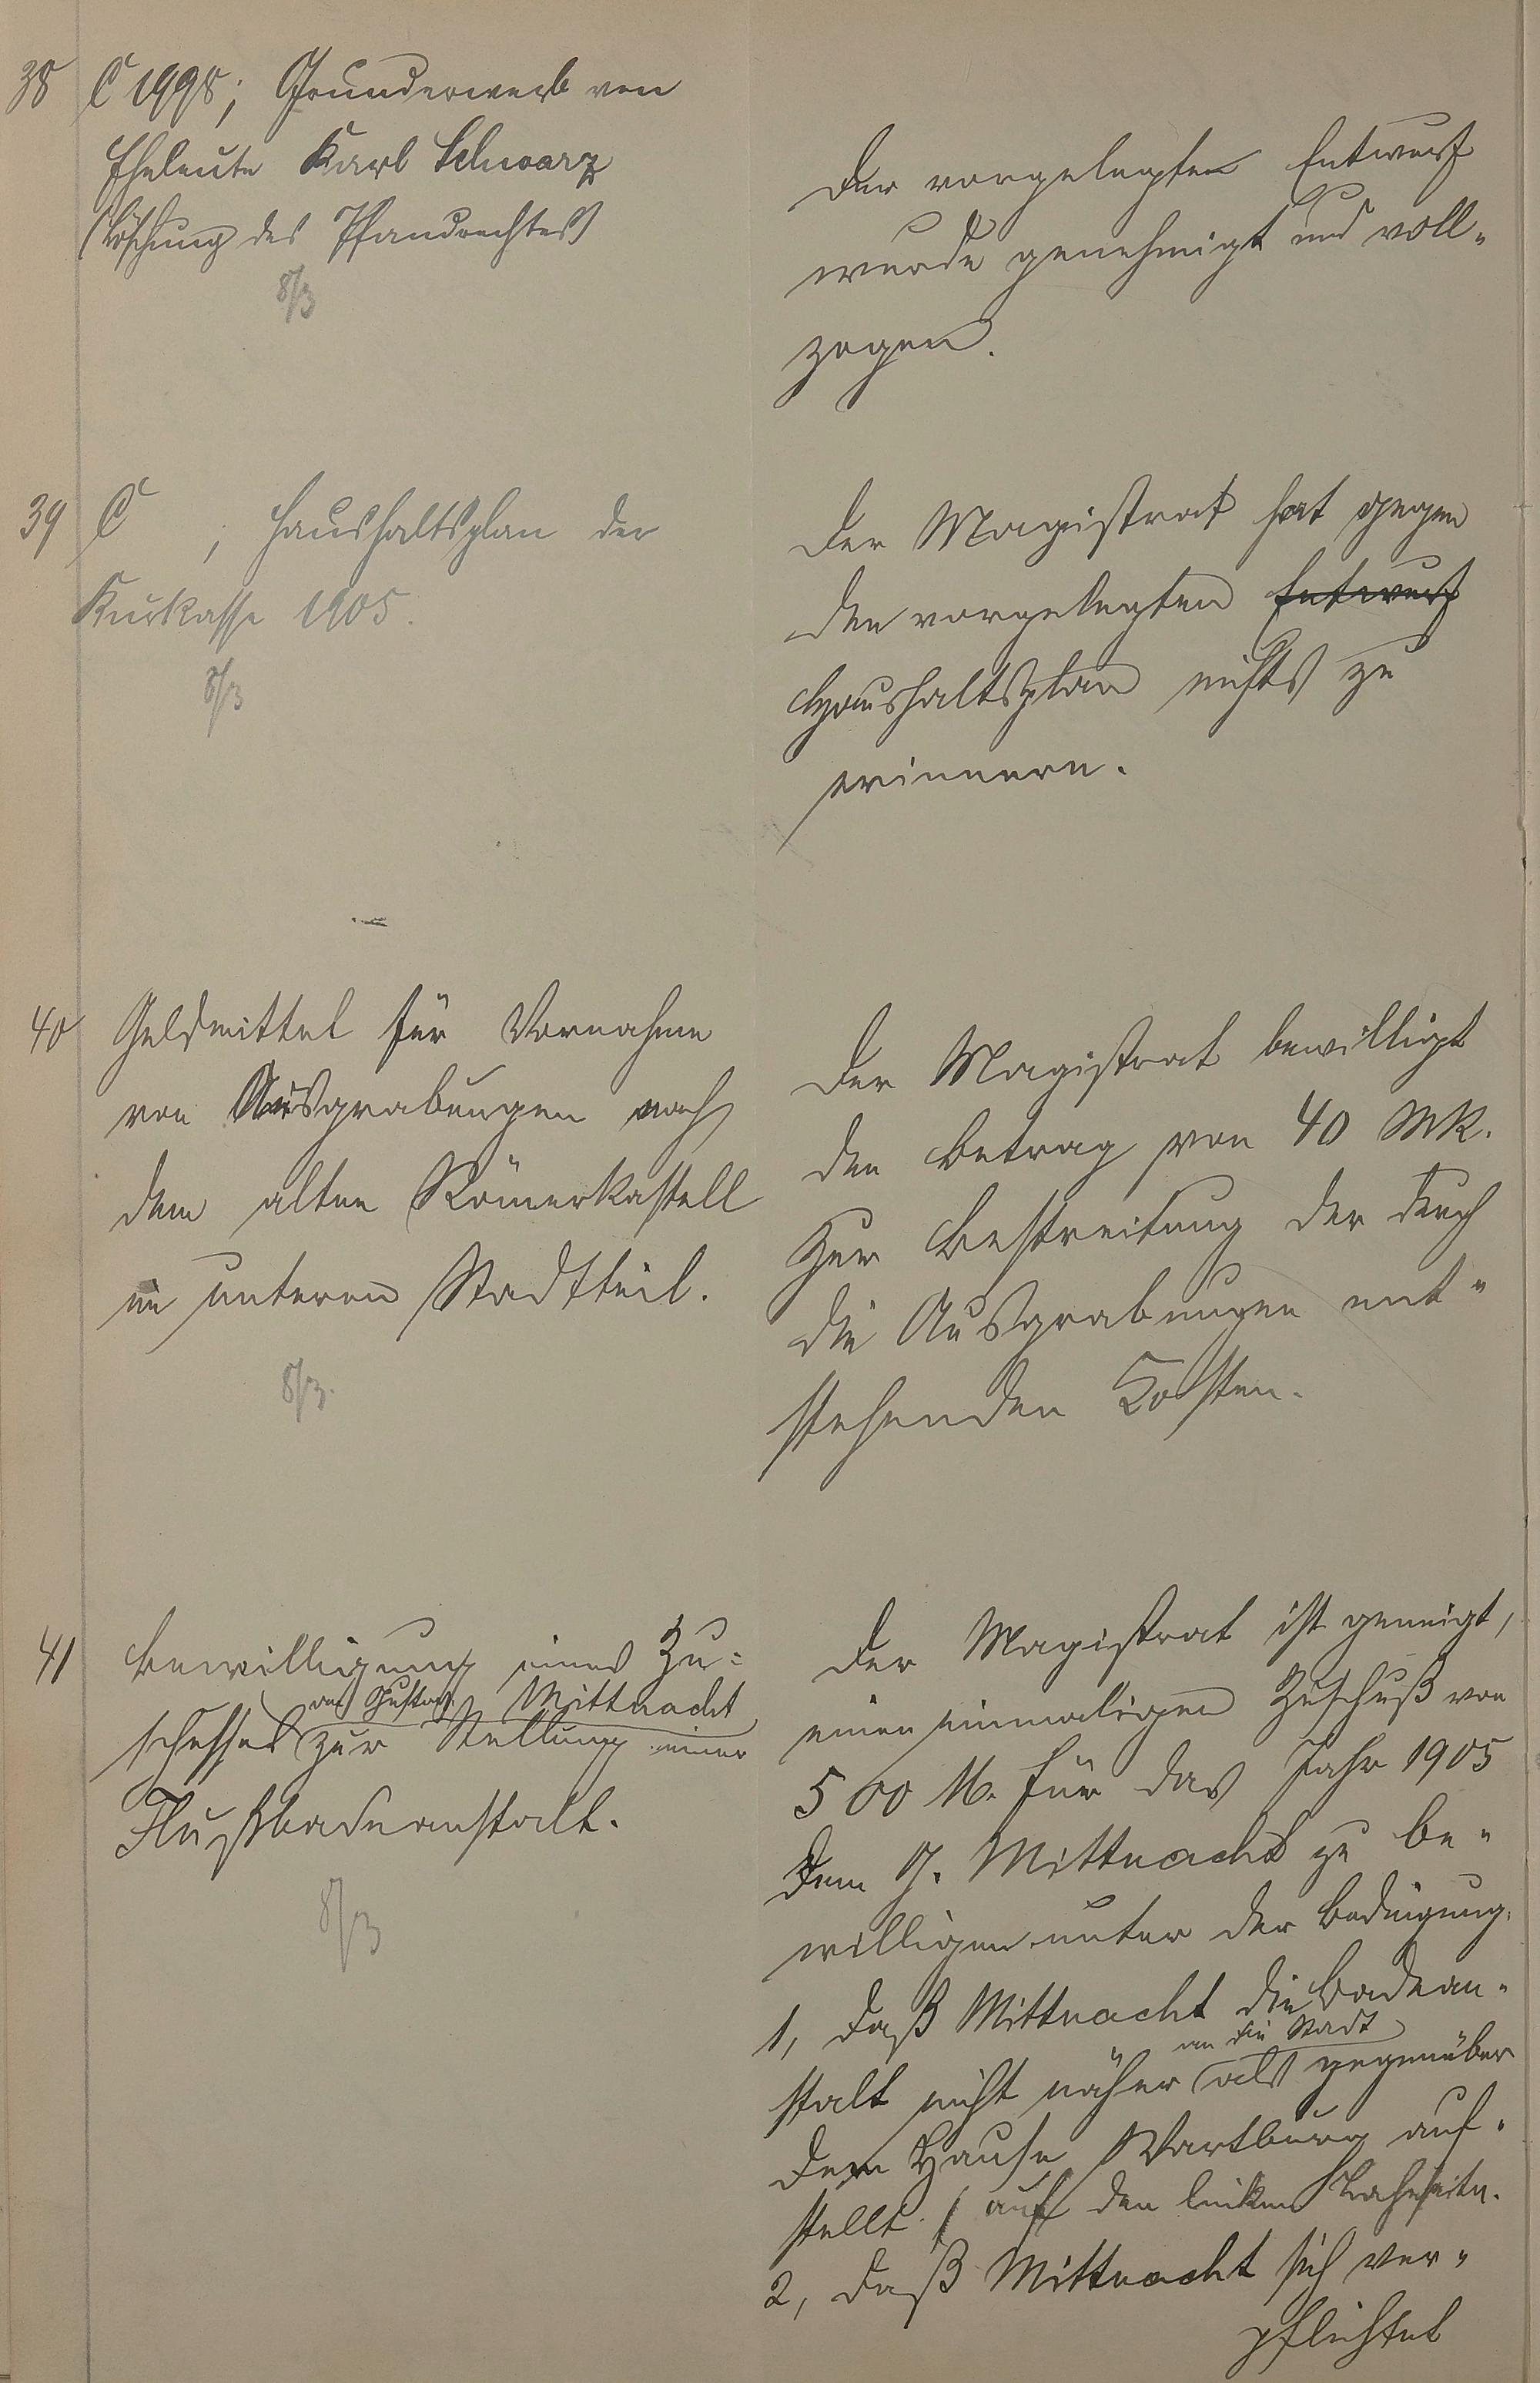 38 C 1998; Grunderwerb von
Eheleute Karl Schwarz
(Löschung des Pfandrechtes)
8/3
Der vorgelegte Entwurf
wurde genehmigt und voll-
zogen.
39 C ; Haushaltsplan der
Kurkasse 1905.
8/3
Der Magistrat hat gegen
den vorgelegten Entwurf
Haushaltsplan nichts zu
erinnern.
40 Geldmittel für Vornahme
von Ausgrabungen nach
dem alten Römerkastell
im unteren Stadtteil.
8/3.
Der Magistrat bewilligt
den Betrag von 40 Mk.
zur Bestreitung der durch
die Ausgrabungen ent-
stehenden Kosten.
41 Bewilligung eines Zu-
an Gustav Mittnacht
schusses zur Stellung einer
Flußbadeanstalt.
8/3
Der Magistrat ist geneigt,
einen einmaligen Zuschuß von
500 M. für das Jahr 1905
dem G. Mittnacht zu be-
willigen unter der Bedingung,
1, daß Mittnacht die Badean-
an die Stadt
stalt nicht näher als gegenüber
dem Hause Wartburg auf-
stellt. (auf der linken Lahnseite.
2, daß Mittnacht sich ver-
pflichtet